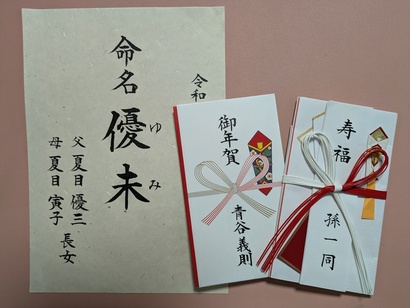 令和
命名
優未
ゆみ
父 夏目 優三
母 夏目 寅子
長女
御年賀
青谷義則
寿福
孫一同